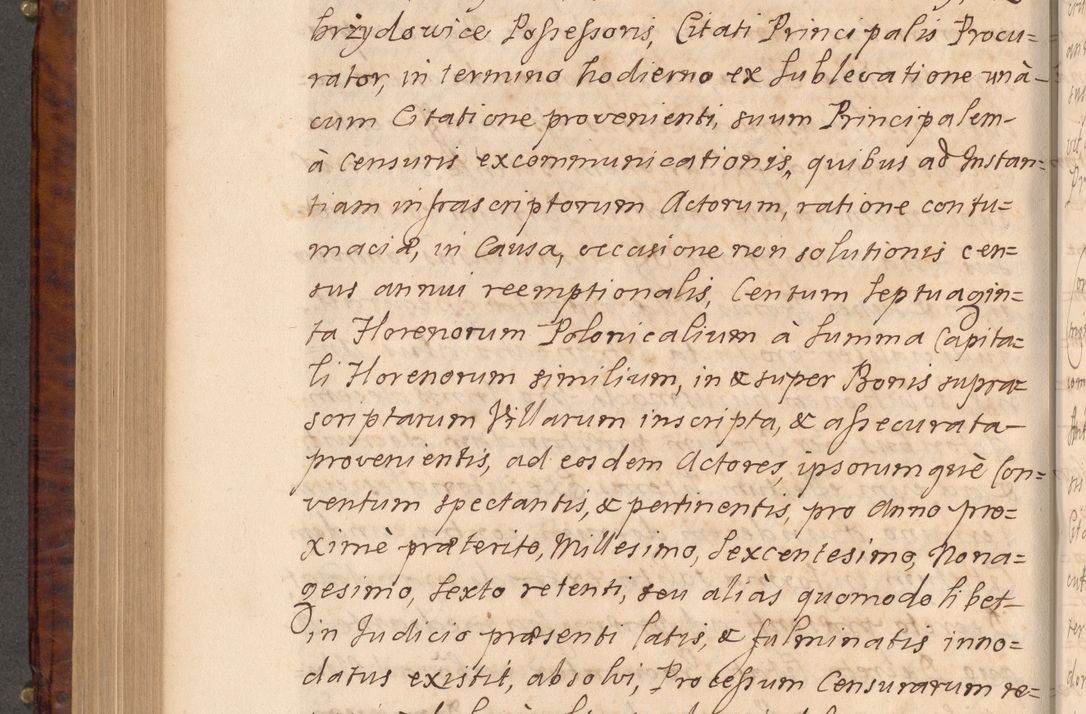 brzydowice Possessoris, Citati Principalis Procu=
rator, in termino hodierno ex sublevatione unà
cum Citatione provenienti, suum Principalem
à Censuris excommunicationis, quibus ad Instan=
tiam infrascriptorum Actorum, ratione contu=
maciæ, in Causa, occasione non solutionis cen=
sus annui reemptionalis, Centum Septuagin=
ta Florenorum Polonicalium à Summa Capita=
li Florenorum similium, in & super Bonis supra=
scriptarum Villarum inscripta, & assecurata
provenientis, ad eosdem Actores, ipsorumquè Con=
ventum spectantis, & pertinentis, pro Anno pro=
ximè præterito, Millesimo, Sexcentesimo, Nona=
gesimo, Sexto retenti, seu aliàs quomodolibet
in Judicio præsenti latis, & fulminatis inno=
datus existit, absolvi, Processum Censurarum re=